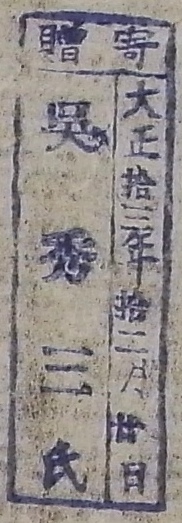 寄贈
大正拾三年拾二月廿日
吳秀三氏